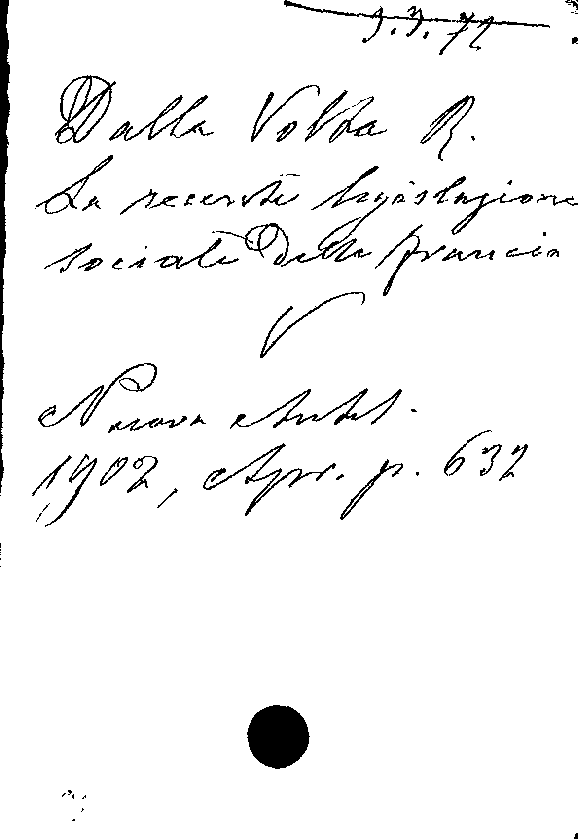 3.3.72
Dalla Volta R.
La recente legislazione
sociale della francia
V
Nuova Antol.
1902, Apr. p. 632